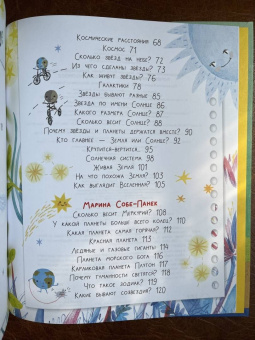 Космические расстояния 68
Космос 71
Сколько звёзд на небе? 72
Из чего сделаны звёзды? 73
Как живут звёзды? 76
Галактики 78
Звёзды бывают разные 85
Звезда по имени Солнце 86
Какого размера Солнце? 87
Сколько весит Солнце? 88
Почему звёзды и планеты держатся вместе? 90
Кто главнее – Земля или Солнце? 92
Крутится-вертится 95
Солнечная система 98
Живая Земля 101
На что похожа Земля? 103
Как выглядит Вселенная? 105
Марина Собе-Панек
Сколько весит Меркурий? 108
У какой планеты больше всего колец? 110
Какая планета самая горячая? 112
Красная планета 113
Ледяные и газовые гиганты 114
Планета морского бога 116
Карликовая планета Плутон 117
Почему туманности светятся? 118
Что такое зодиак? 119
Какие бывают созвездия? 120